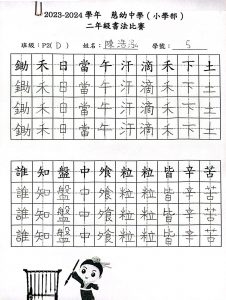 2023-2024 學年 慈幼中學(小學部)
二年級書法比賽
班級:(P2(D) 姓名: 陳浩泓 學號: 5
鋤禾日當午汗滴禾下土
鋤禾日當午汗滴禾下土
鋤禾日當午汗滴禾下土
鋤禾日當午汗滴禾下土
誰知盤中飧粒粒皆辛苦
誰知盤中飧粒粒皆辛苦
誰知盤中飧粒粒皆辛苦
誰知盤中飧粒粒皆辛苦